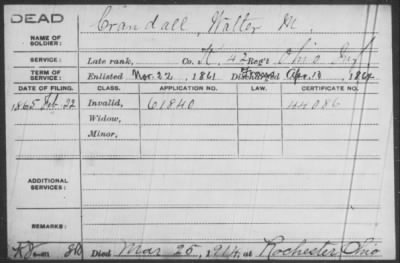 DEAD
NAME OF SOLDIER: Crandall, Walter M.
SERVICE: Late rank, Co. K, 42 Reg't Ohio Inf
TERM OF SERVICE: Enlisted Nov. 22, 1861 Discharged Apr. 10, 1864
DATE OF FILING. CLASS. APPLICATION NO. LAW. CERTIFICATE NO.
1865 Feb 22 Invalid, 61840 44086
Widow,
Minor,
ADDITIONAL SERVICES:
REMARKS:
Died Mar 25, 1914, at Rochester, Ohio